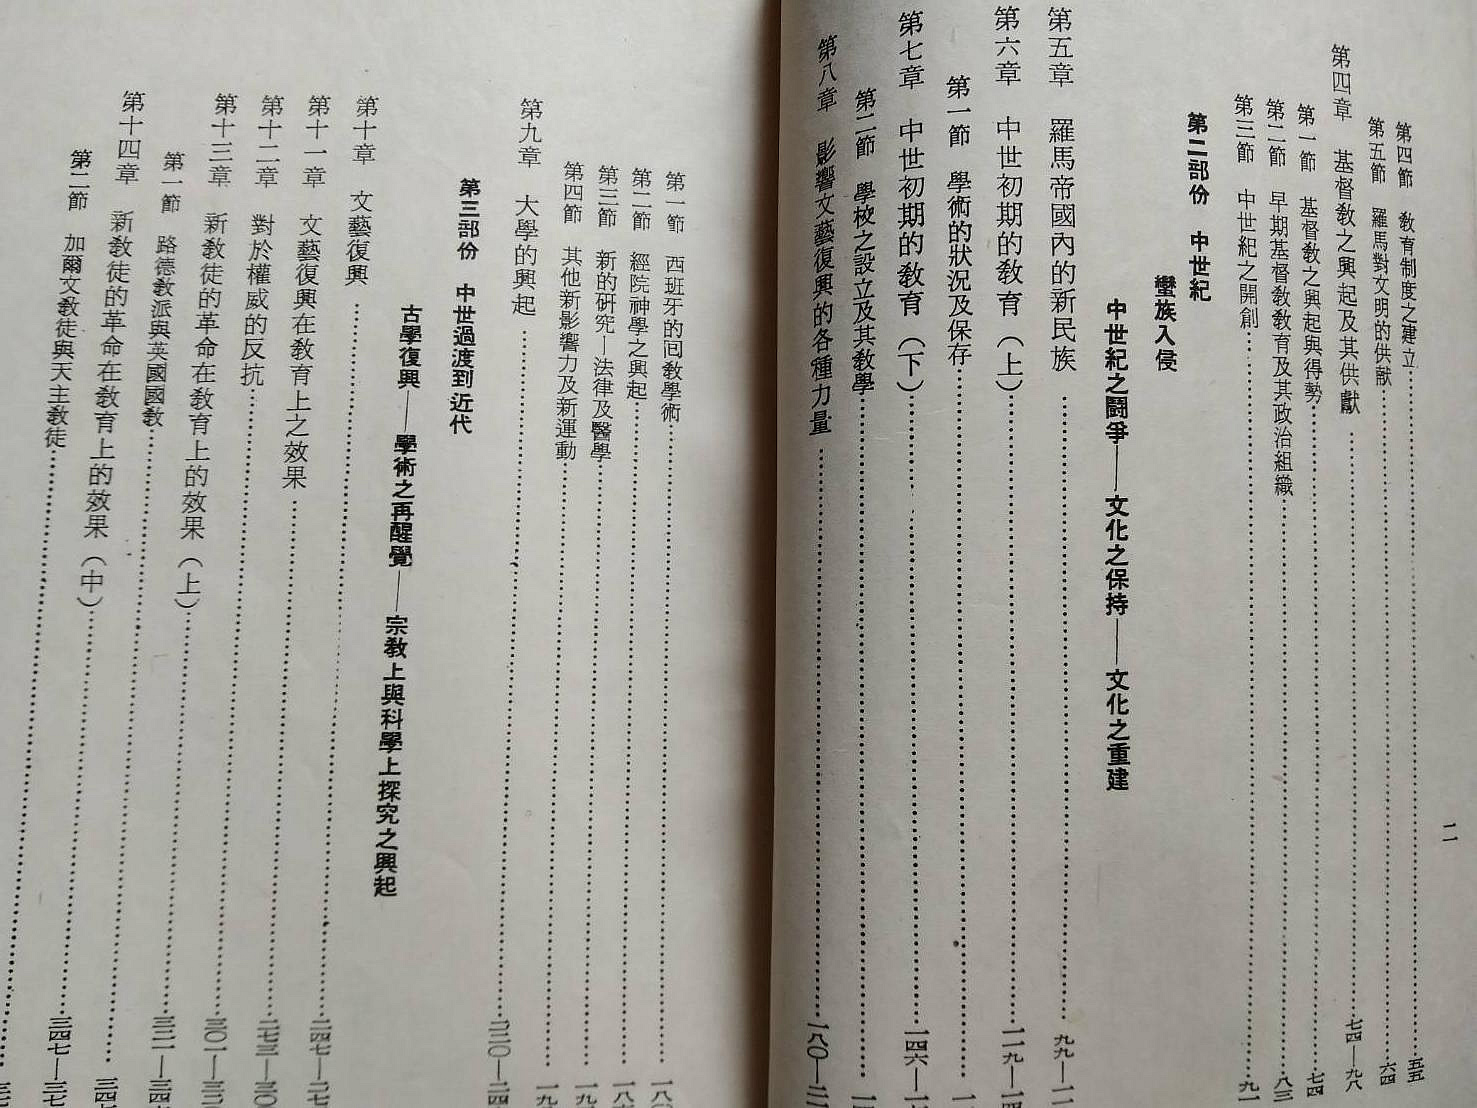 二
第四節 教育制度之建立……五五
第五節 羅馬對文明的供獻……六四
第四章 基督教之興起及其供獻……七四—九八
第一節 基督教之興起與得勢……七四
第二節 早期基督教教育及其政治組織……八三
第三節 中世紀之開創……九一
第二部份 中世紀
蠻族入侵
中世紀之鬪爭——文化之保持——文化之重建
第五章 羅馬帝國內的新民族……九九—一一
第六章 中世初期的教育(上)……一一九—一四
第一節 學術的狀況及保存……一
第七章 中世初期的教育(下)……一四六—一
第二節 學校之設立及其教學……一
第八章 影響文藝復興的各種力量……一八〇—二
第一節 西班牙的回教學術……一八
第二節 經院神學之興起……一八
第三節 新的研究—法律及醫學……一九
第四節 其他新影響力及新運動……一九
第九章 大學的興起……二二〇—二四
第三部份 中世過渡到近代
古學復興——學術之再醒覺——宗教上與科學上探究之興起
第十章 文藝復興
第十一章 文藝復興在教育上之效果……二四七—二七
第十二章 對於權威的反抗……二七三—三〇
第十三章 新教徒的革命在教育上的效果(上)……三〇一—三二
第一節 路德教派與英國國教……三二一—三四
第十四章 新教徒的革命在教育上的效果(中)……三四
第二節 加爾文教徒與天主教徒……三四七—三七